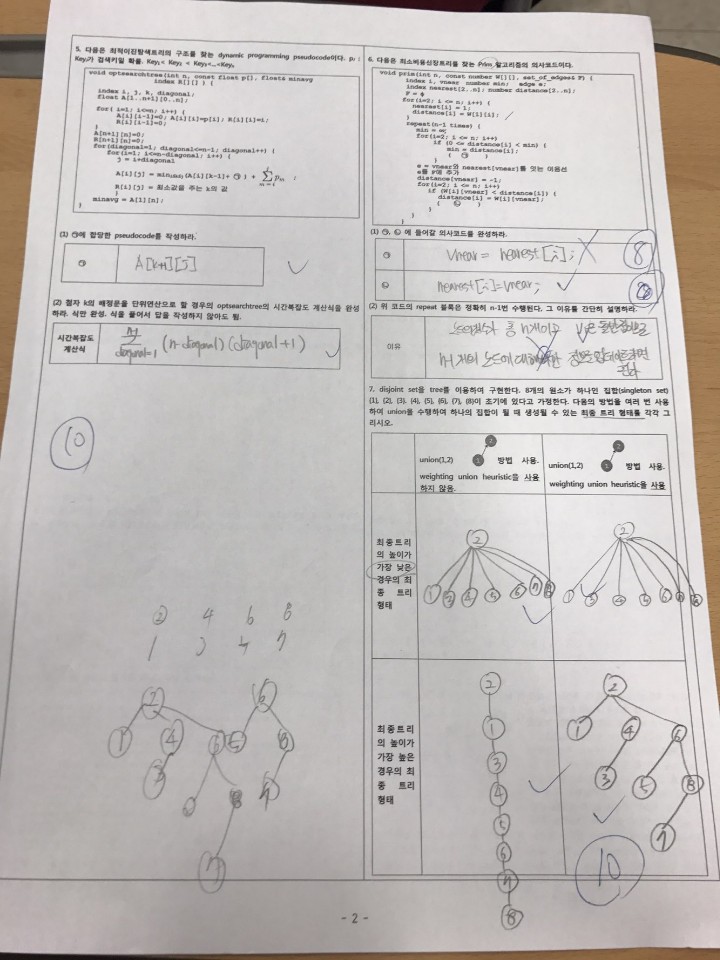 5. 다음은 최적이진탐색트리의 구조를 찾는 dynamic programming pseudocode이다. pᵢ :
Keyᵢ가 검색키일 확률. Key₁< Key₂ < Key₃<...<Keyₙ
void optsearchtree(int n, const float p[], float& minavg
index R[][] ) {
index i, j, k, diagonal;
float A[1..n+1][0..n];
for( i=1; i<=n; i++) {
A[i][i-1]=0; A[i][i]=p[i]; R[i][i]=i;
R[i][i-1]=0;
}
A[n+1][n]=0;
R[n+1][n]=0;
for(diagonal=1; diagonal<=n-1; diagonal++) {
for(i=1; i<=n-diagonal; i++) {
j = i+diagonal
A[i][j] = min i≤k≤j (A[i][k-1]+ ㉠ ) + ∑ʲₘ₌ᵢ pₘ ;
R[i][j] = 최소값을 주는 k의 값
}
minavg = A[1][n];
}
(1) ㉠에 합당한 pseudocode를 작성하라.
㉠ A[k+1][j]
(2) 첨자 k의 배정문을 단위연산으로 할 경우의 optsearchtree의 시간복잡도 계산식을 완성
하라. 식만 완성. 식을 풀어서 답을 작성하지 않아도 됨.
시간복잡도
계산식
n-1
∑ (n-diagonal)(diagonal+1)
diagonal=1
10
2 4 6 8
1 3
2
6
1 4 6 5 8
3
7
7
6. 다음은 최소비용신장트리를 찾는 Prim 알고리즘의 의사코드이다.
void prim(int n, const number W[][], set_of_edges& F) {
index i, vnear number min; edge e;
index nearest[2..n]; number distance[2..n];
F = ϕ
for(i=2; i <= n; i++) {
nearest[i] = 1;
distance[i] = W[1][i];
}
repeat(n-1 times) {
min = ∞;
for(i=2; i <= n; i++)
if (0 <= distance[i] < min) {
min = distance[i];
( ㉠ )
}
e = vnear와 nearest[vnear]를 잇는 이음선
e를 F에 추가
distance[vnear] = -1;
for(i=2; i <= n; i++)
if (W[i][vnear] < distance[i]) {
distance[i] = W[i][vnear];
( ㉡ )
}
}
}
(1) ㉠, ㉡ 에 들어갈 의사코드를 완성하라.
㉠ vnear = nearest[i]; 8
㉡ nearest[i]=vnear;
(2) 위 코드의 repeat 블록은 정확히 n-1번 수행된다. 그 이유를 간단히 설명하라.
이유
7. disjoint set을 tree를 이용하여 구현한다. 8개의 원소가 하나인 집합(singleton set)
(1), (2), (3), (4), (5), (6), (7), (8)이 초기에 있다고 가정한다. 다음의 방법을 여러 번 사용
하여 union을 수행하여 하나의 집합이 될 때 생성될 수 있는 최종 트리 형태를 각각 그
리시오.
union(1,2) 2 1 방법 사용.
weighting union heuristic을 사용
하지 않음.
union(1,2) 2 1 방법 사용.
weighting union heuristic을 사용
최종트리
의 높이가
가장 낮은
경우의 최
종 트리
형태
2
1 3 4 5 6 7 8
2
1 3 4 5 6 7 8
최종트리
의 높이가
가장 높은
경우의 최
종 트리
형태
2
1
3
4
5
6
7
8
2
1 4 6
3 5 8
7
10
- 2 -